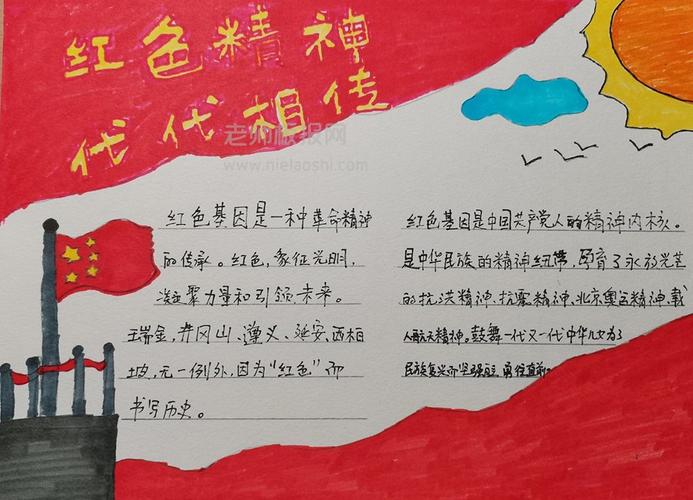 红色精神
代代相传
老师板报网
www.nielaoshi.com
红色基因是一种革命精神
的传承。红色,象征光明,
凝聚力量和引领未来。
瑞金,井冈山、遵义、延安、西柏
坡,无一例外,因为“红色”而
书写历史。
红色基因是中国共产党人的精神内核。
是中华民族的精神纽带,孕育了永放光芒
的抗洪精神、抗震精神、北京奥运精神、载
人航天精神,鼓舞一代又一代中华儿女为了
民族复兴而坚强屹立,勇往直前。